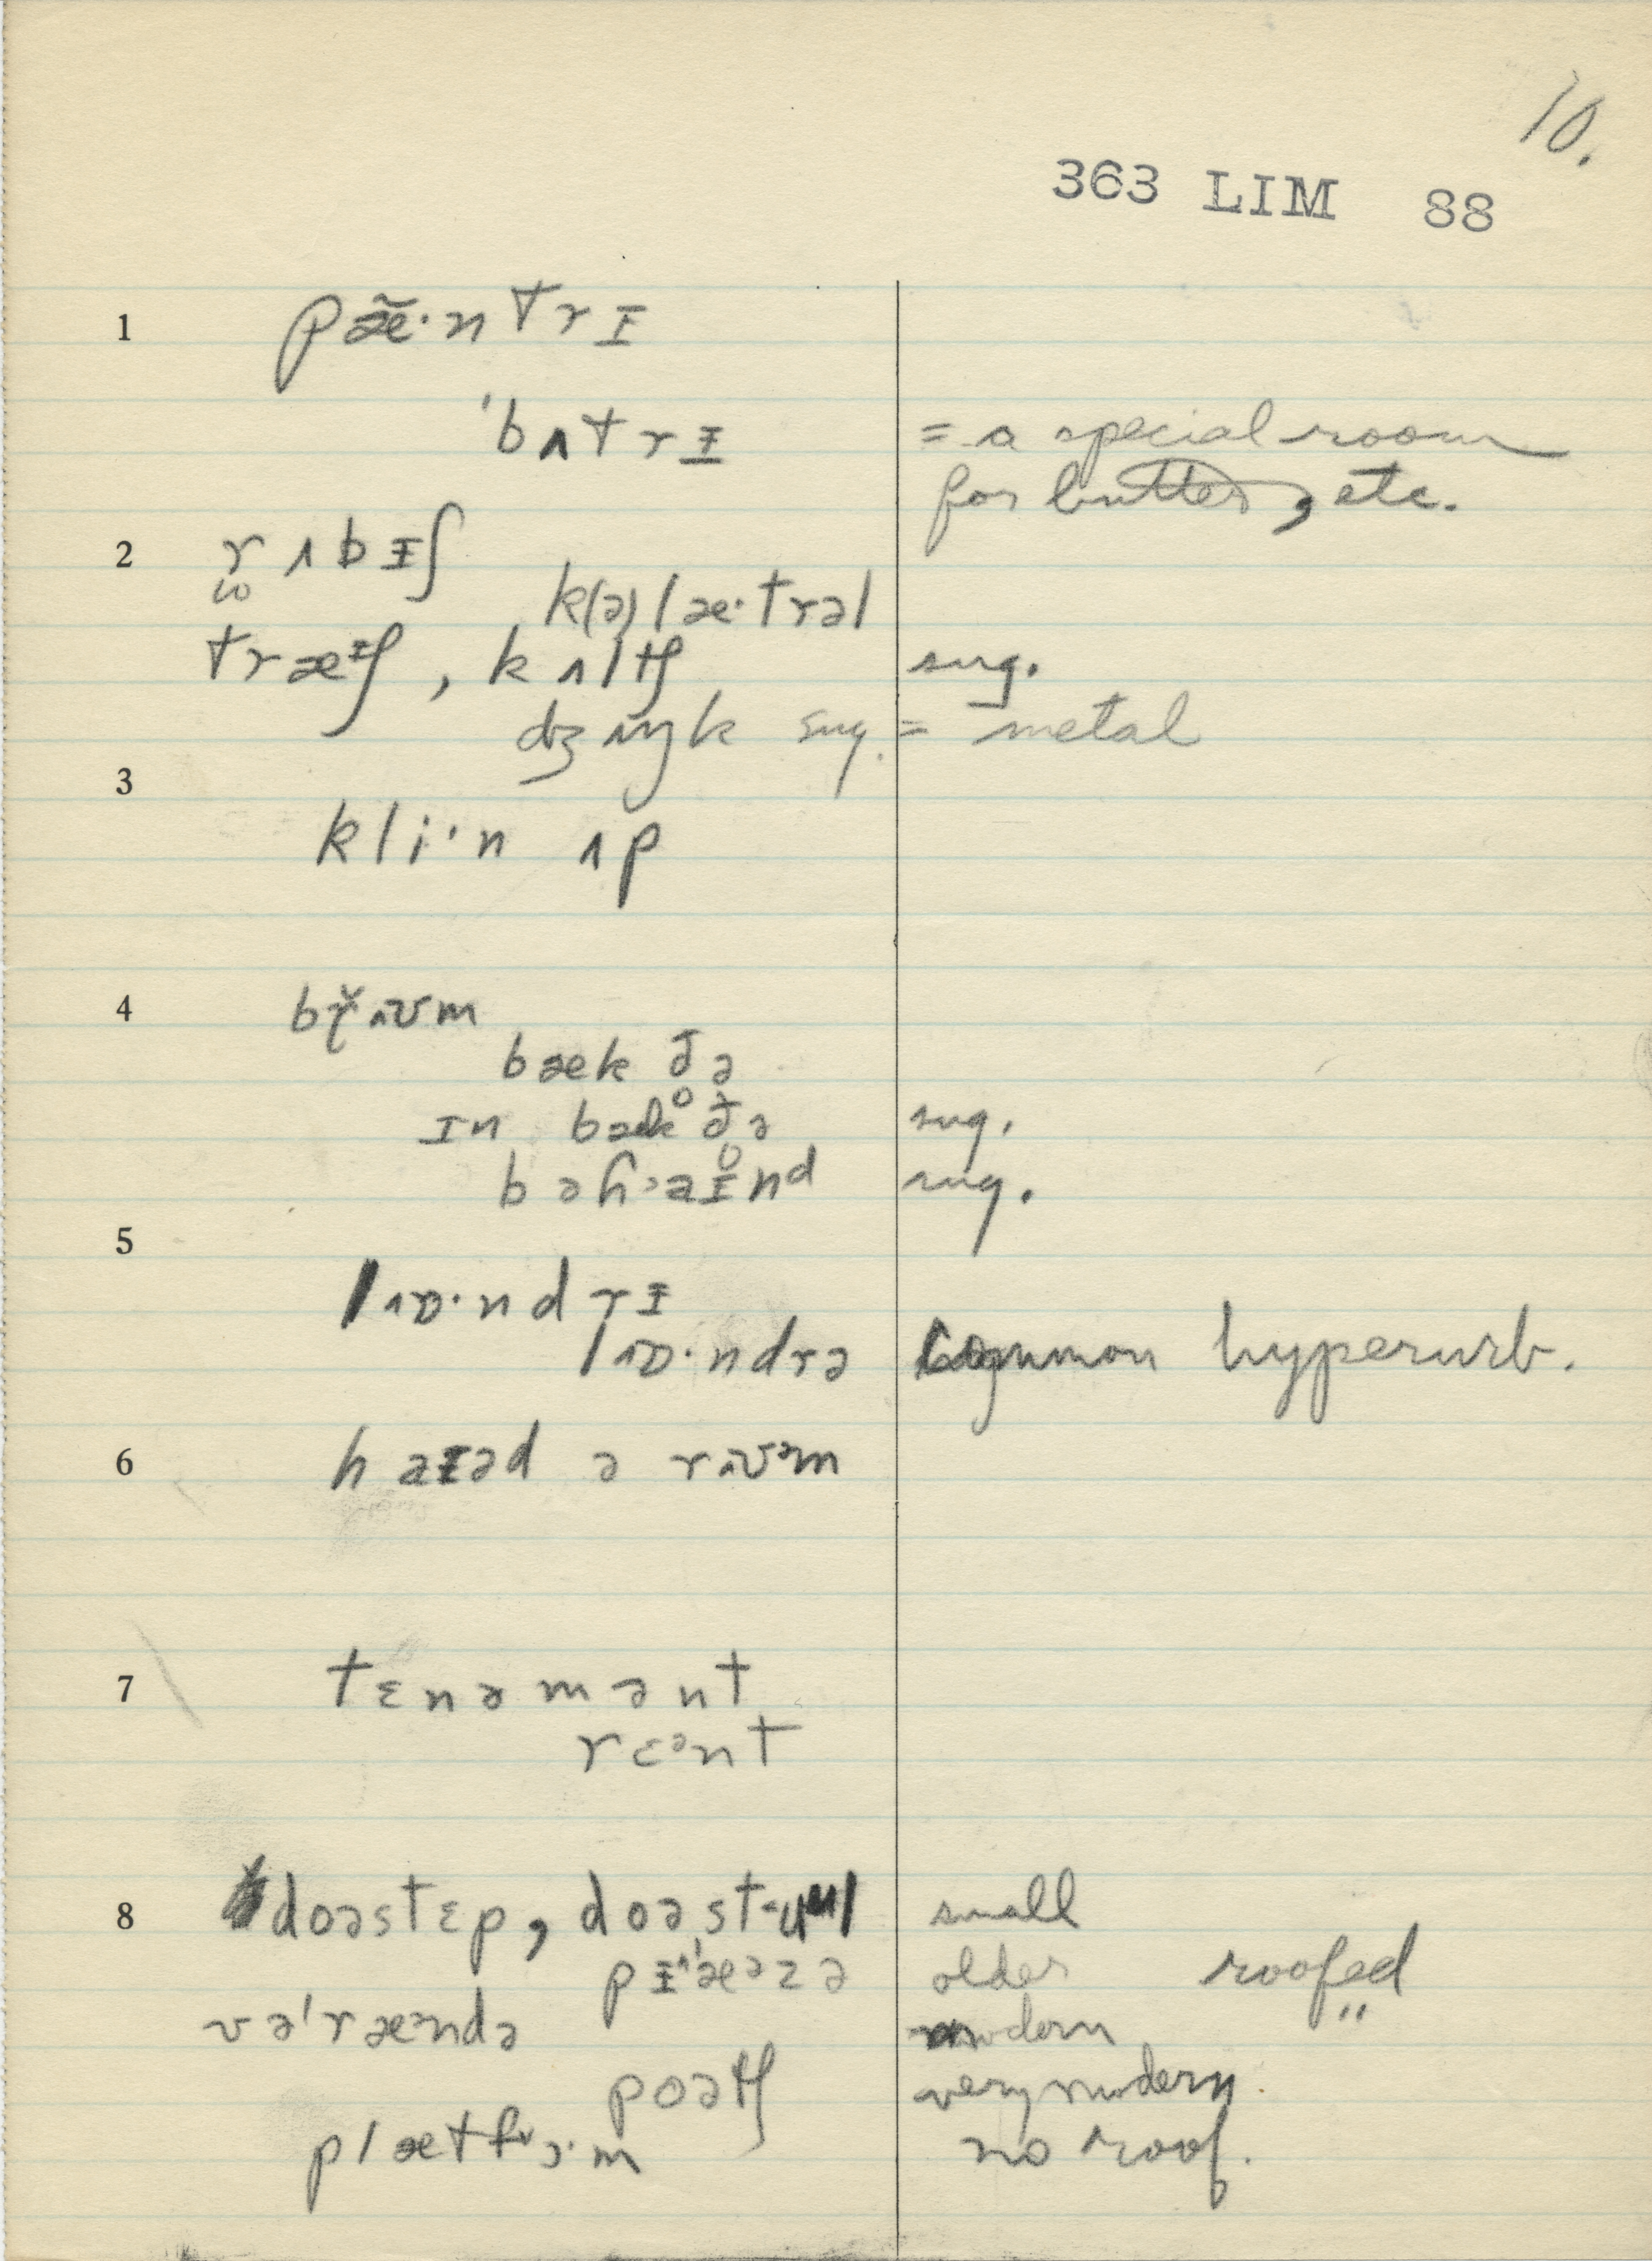 10.
363 LIM 88
1 pæ̃·ntrɪ
'bʌtrɪ = a special room
for butter, etc.
2 rʌbɪʃ
k(ə)læ·trəl
træᶦʃ, kʌltʃ sug.
dʒʌŋk sug. = metal
3
kli·n ʌp
4 brʌʊm
bæk ðə
ɪn bæk ðə sug.
bəɦaɪnd sug.
5
lɒ·ndrɪ
lɒ·ndrə common hyperurb.
6 haɪəd ə rʌʊᵊm
7 tɛnəmənt
rɛᵊnt
8 doəstɛp, doəst-ul small
pɪ'æᵊzə older roofed
və'ræᵊndə modern "
poətʃ very modern.
plætfɔ·m no roof.